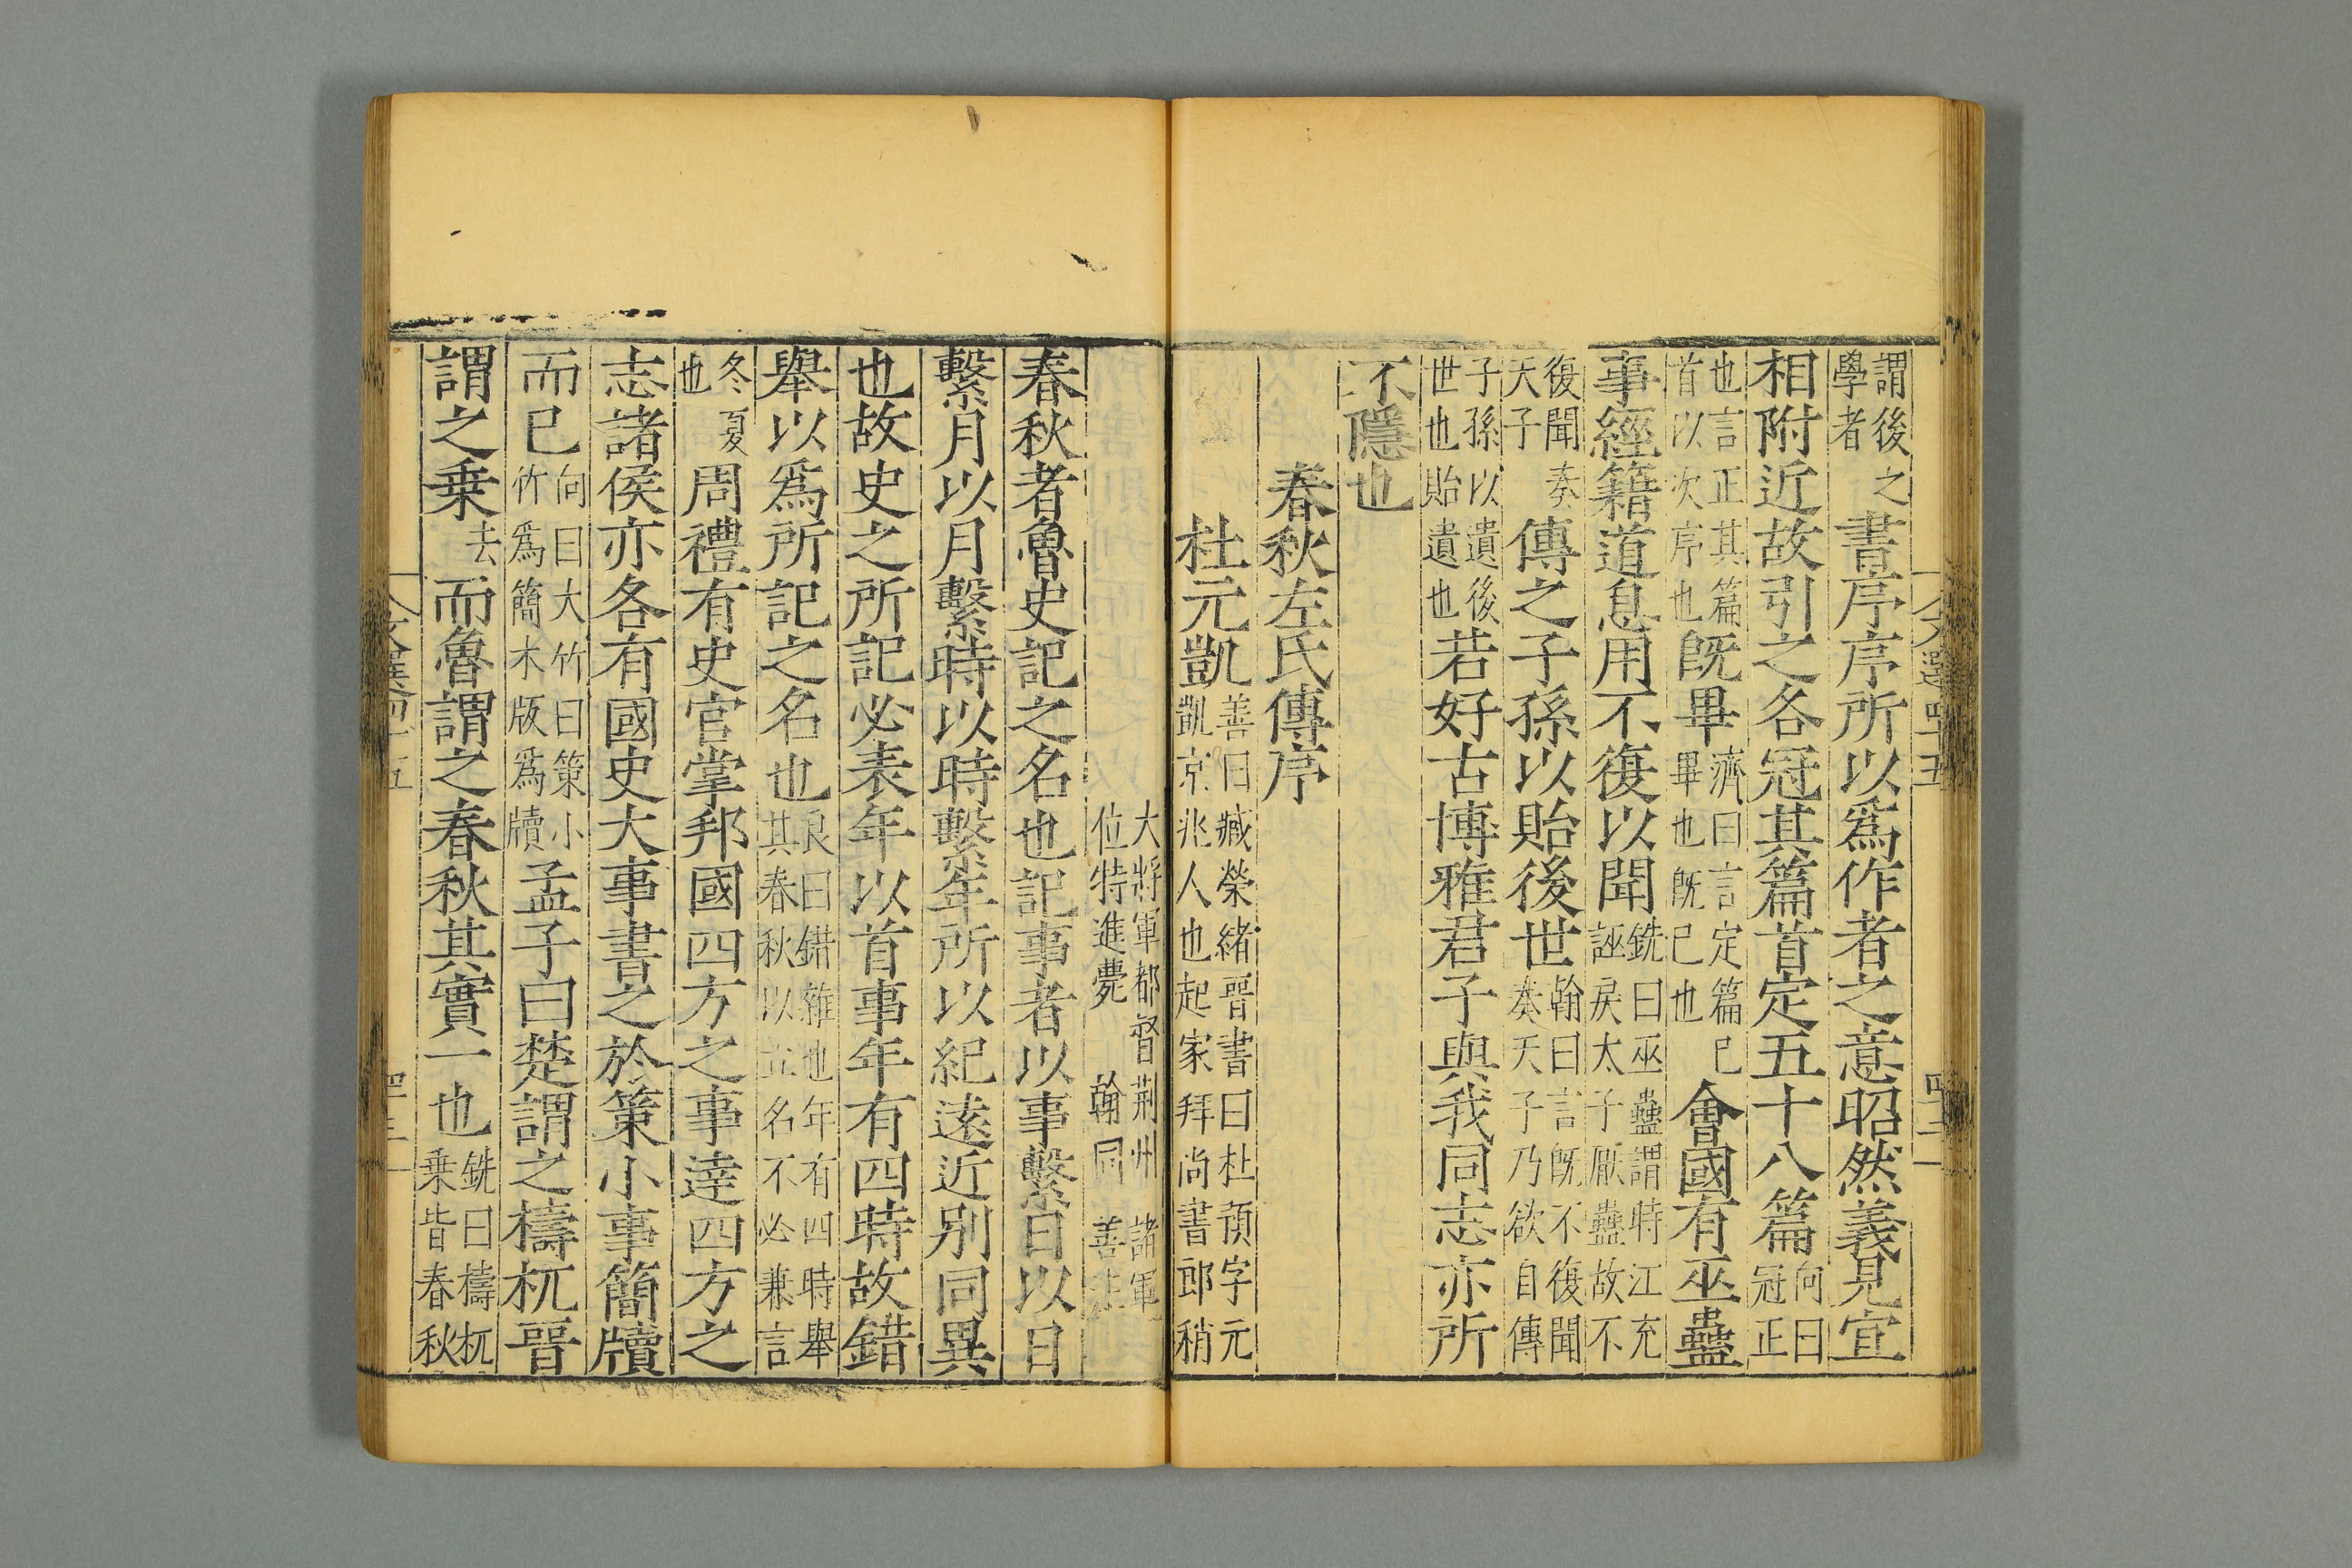 謂後之學者書序序所以爲作者之意昭然義見宜
相附近故引之各冠其篇首定五十八篇向曰冠正
也言正其篇首以次序也旣畢濟曰言定篇已畢也旣已也會國有巫蠱
事經籍道息用不復以聞銑曰巫蠱謂時江充誣戾太子厭蠱故不
復聞奏天子傳之子孫以貽後世翰曰言旣不復聞奏天子乃欲自傳
子孫以遺後世也貽遺也若好古博雅君子與我同志亦所
不隱也
春秋左氏傳序
杜元凱善曰臧榮緒晉書曰杜預字元凱京兆人也起家拜尚書郎稍
大將軍都督荊州諸軍位特進薨翰同善注
春秋者魯史記之名也記事者以事繫日以日
繫月以月繫時以時繫年所以紀遠近別同異
也故史之所記必表年以首事年有四時故錯
舉以爲所記之名也良曰錯雜也年有四時舉其春秋以立名不必兼言
冬夏也周禮有史官掌邦國四方之事達四方之
志諸侯亦各有國史大事書之於策小事簡牘
而已向曰大竹曰策小竹爲簡木版爲牘孟子曰楚謂之檮杌晉
謂之乗去而魯謂之春秋其實一也銑曰檮杌乗皆春秋
文選四十五
四十二